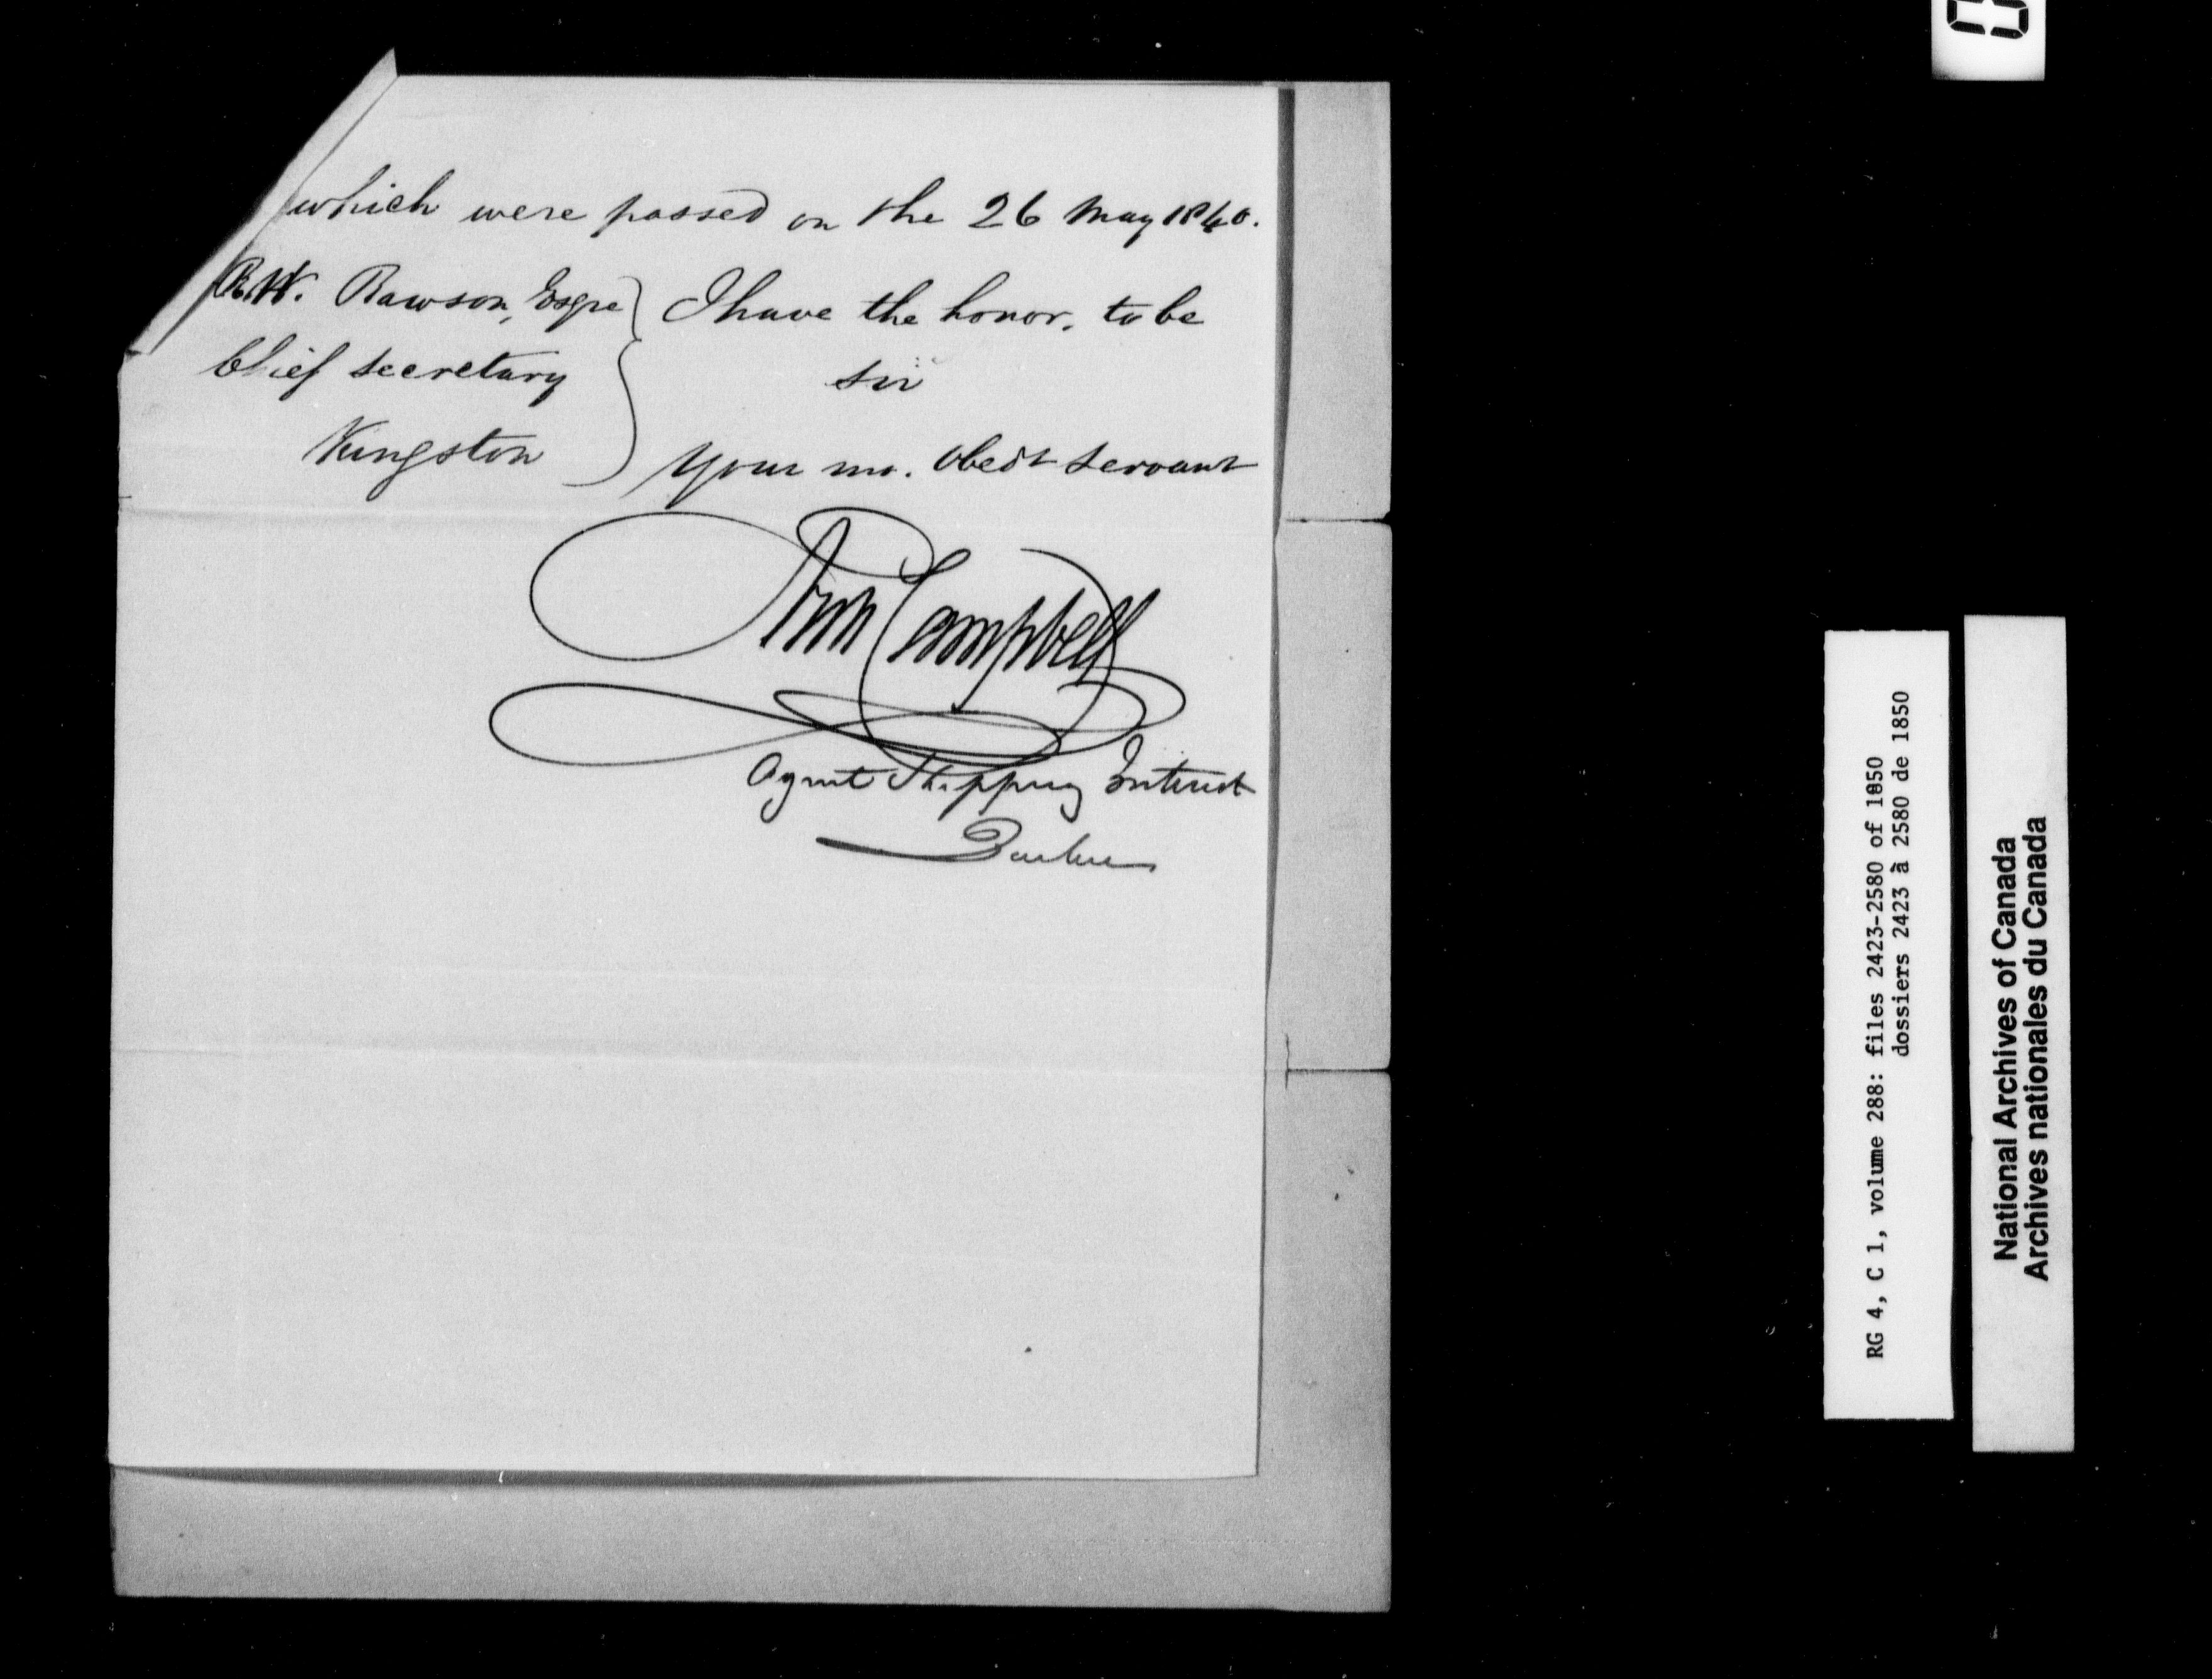 which were passed on the 26 May 1840.
R.W. Rawson, Esqre
Chief secretary
Kingston
I have the honor. to be
sir
Your mo. Obedt servant
Arch Campbell
Agent Shipping Interest
Quebec
RG 4, C 1, volume 288: files 2423-2580 of 1850
dossiers 2423 à 2580 de 1850
National Archives of Canada
Archives nationales du Canada